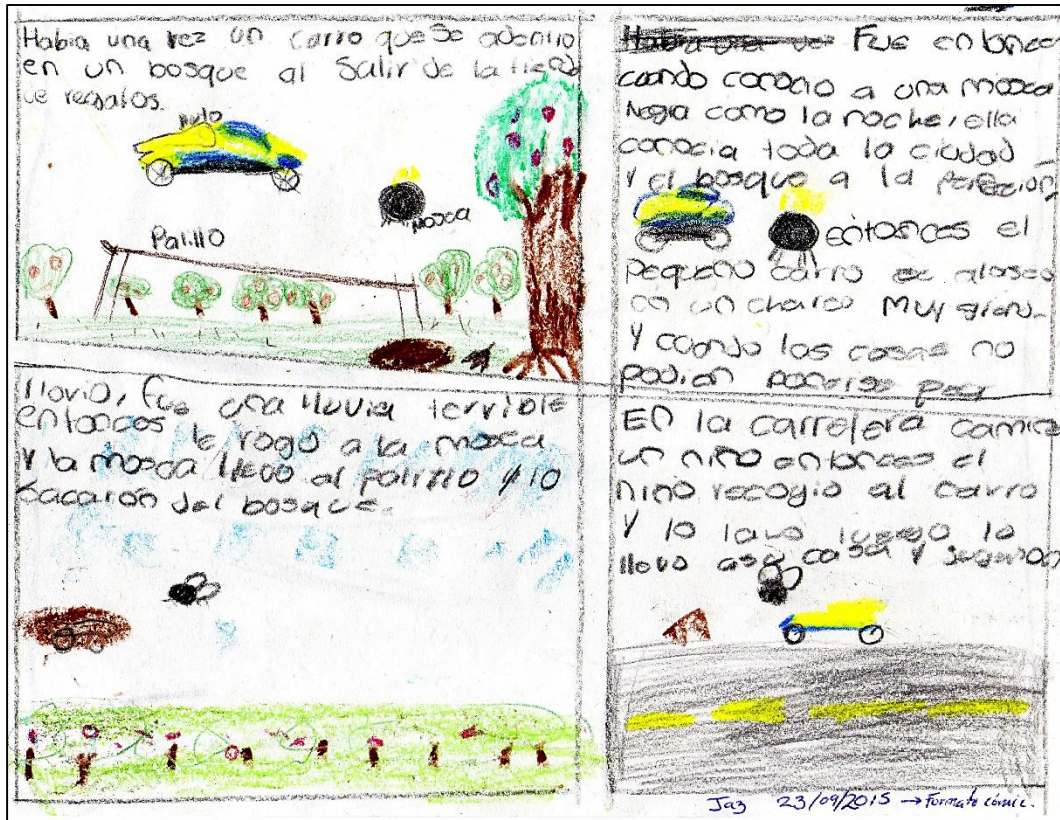 Habia una vez un carro que se adentro
en un bosque al salir de la tienda
de regalos.
Auto
Mosca
Palillo
Habia una vez Fue entonces
cuando conocio a una mosca
negra como la noche, ella
conocia toda la ciudad
y el bosque a la perfeccion,
entonces el
pequeño carro se atasco
en un charco muy grande
Y cuando las cosas no
podian ponerse peor
llovio, fue una lluvia terrible
entonces le rogo a la mosca
Y la mosca llevo al palillo y lo
sacaron del bosque.
EN la carretera camino
un niño entonces el
niño recogio al carro
Y lo lavo luego lo
llevo a su casa y jugaron
Jaz 23/09/2015 → Formato cómic.